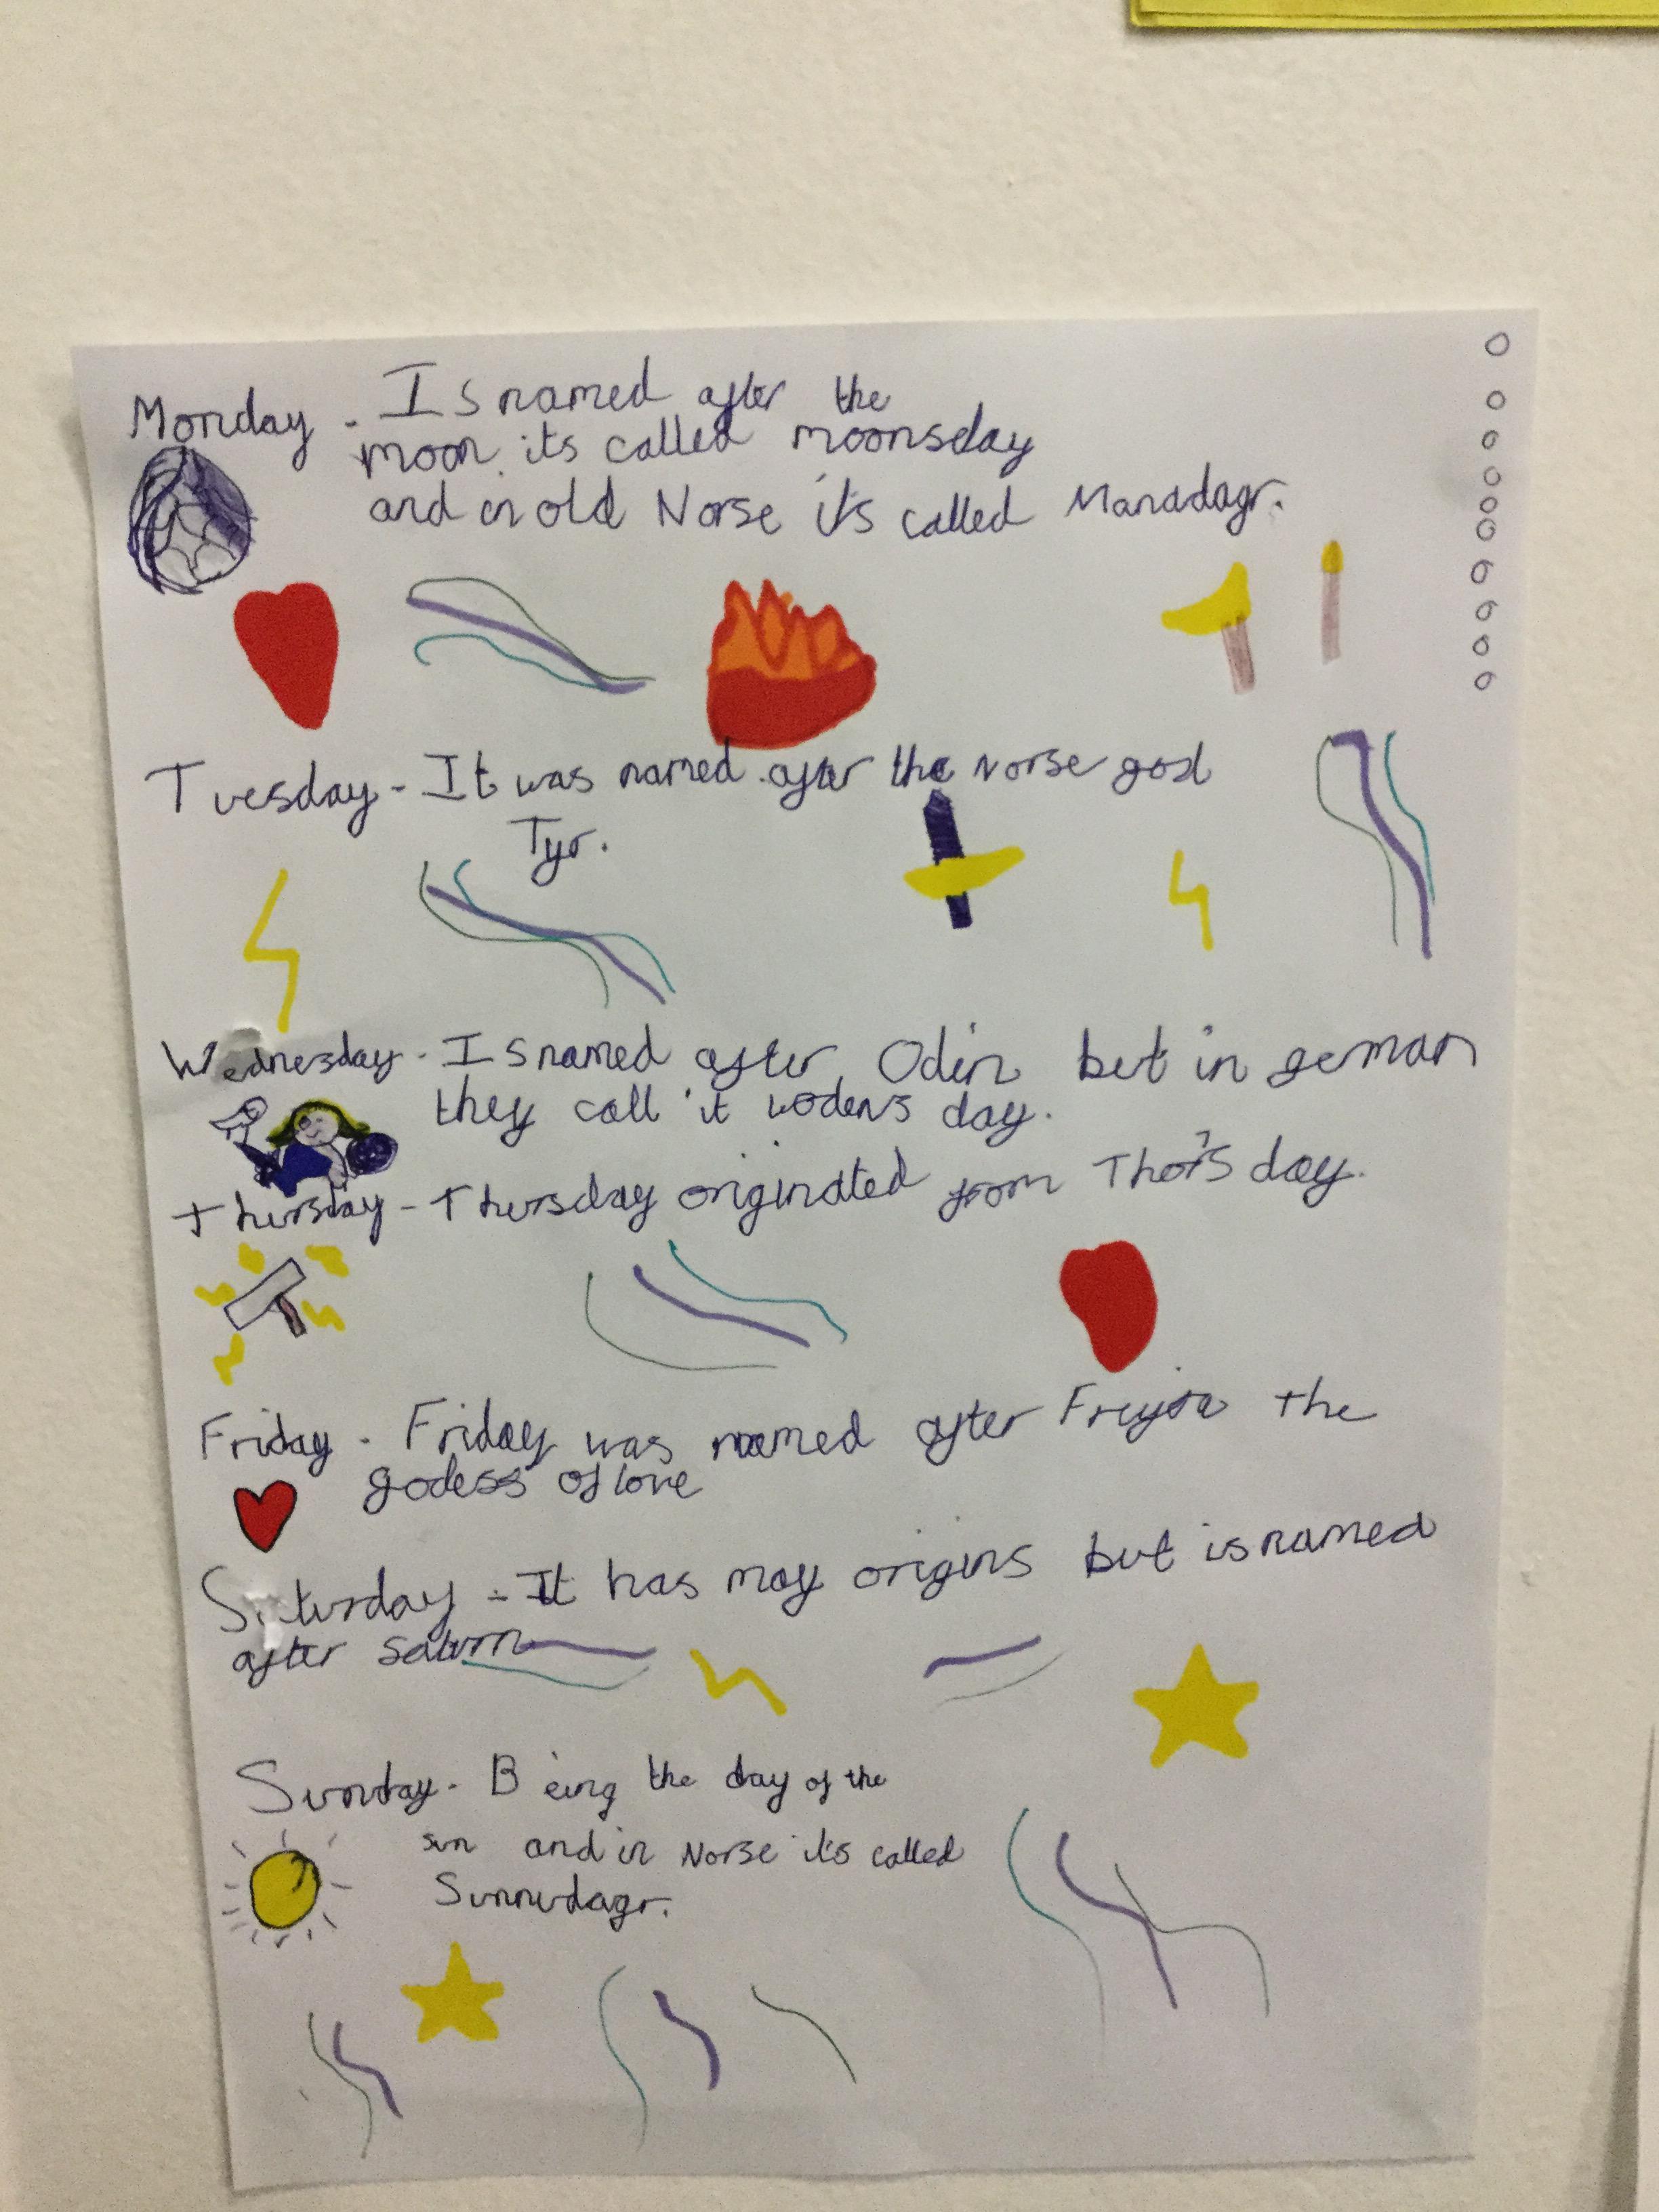 Monday - Is named after the
moon. its called moonsday
and in old Norse it's called Manadagr.
Tuesday - It was named after the Norse god
Tyr.
Wednesday - Is named after Odin but in geman
they call it wodens day.
thursday - thursday originated from Thor's day.
Friday - Friday was named after Freyja the
godess of love
Saturday - It has may origins but is named
after saturn
Sunday - Being the day of the
sun and in Norse it's called
Sunnudagr.